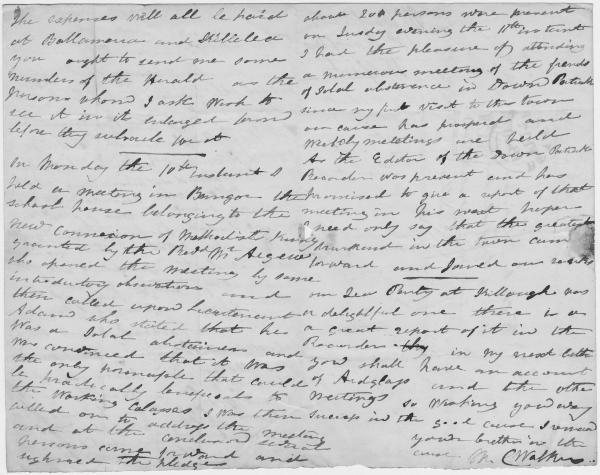 The expenses will all be paid
at Ballamena and
you ought to send me some
numbers of the Herald as the
persons whom I ask Wish to
see it in it enlarged form
before they subscribe for it
On Monday the 10th Instant I
held a meeting in Bangor the
school house belonging to the
New Connexion of Methodist kindly
granted by the Revd Mr
who opened the meeting by some
introductory observations and
then called upon Lieutenant
Adam who stated that he
Was a Total abstainer and
Was convinced that it Was
the only principle that could
be practically beneficial to
the Working Calasses I was then
called on to address the meeting
and at the conclusion several
persons came forward and
the pledge
about 200 persons were present
on Tusday evening the 11th instant
I had the pleasure of attending
a numerous meeting of the friends
of Total abstinence in Down Patrick
since my first visit to this town
our cause has prospered and
Weekly meetings are held
As the Editor of the Down Patrick
Recorder was present and has
promised to give a report of that
meeting in his next paper
I need only say that the greatest
drunkerd in the town came
forward and Joined our ranks
our Tea Party at Killough was
a delightful one there is a
a great report of it in the
Recorder in my next letter
you shall have an account
of Ardglass and the other
meetings so Wishing you every
Sucsess in the good cause I remain
yours truly in the
cause C Walker